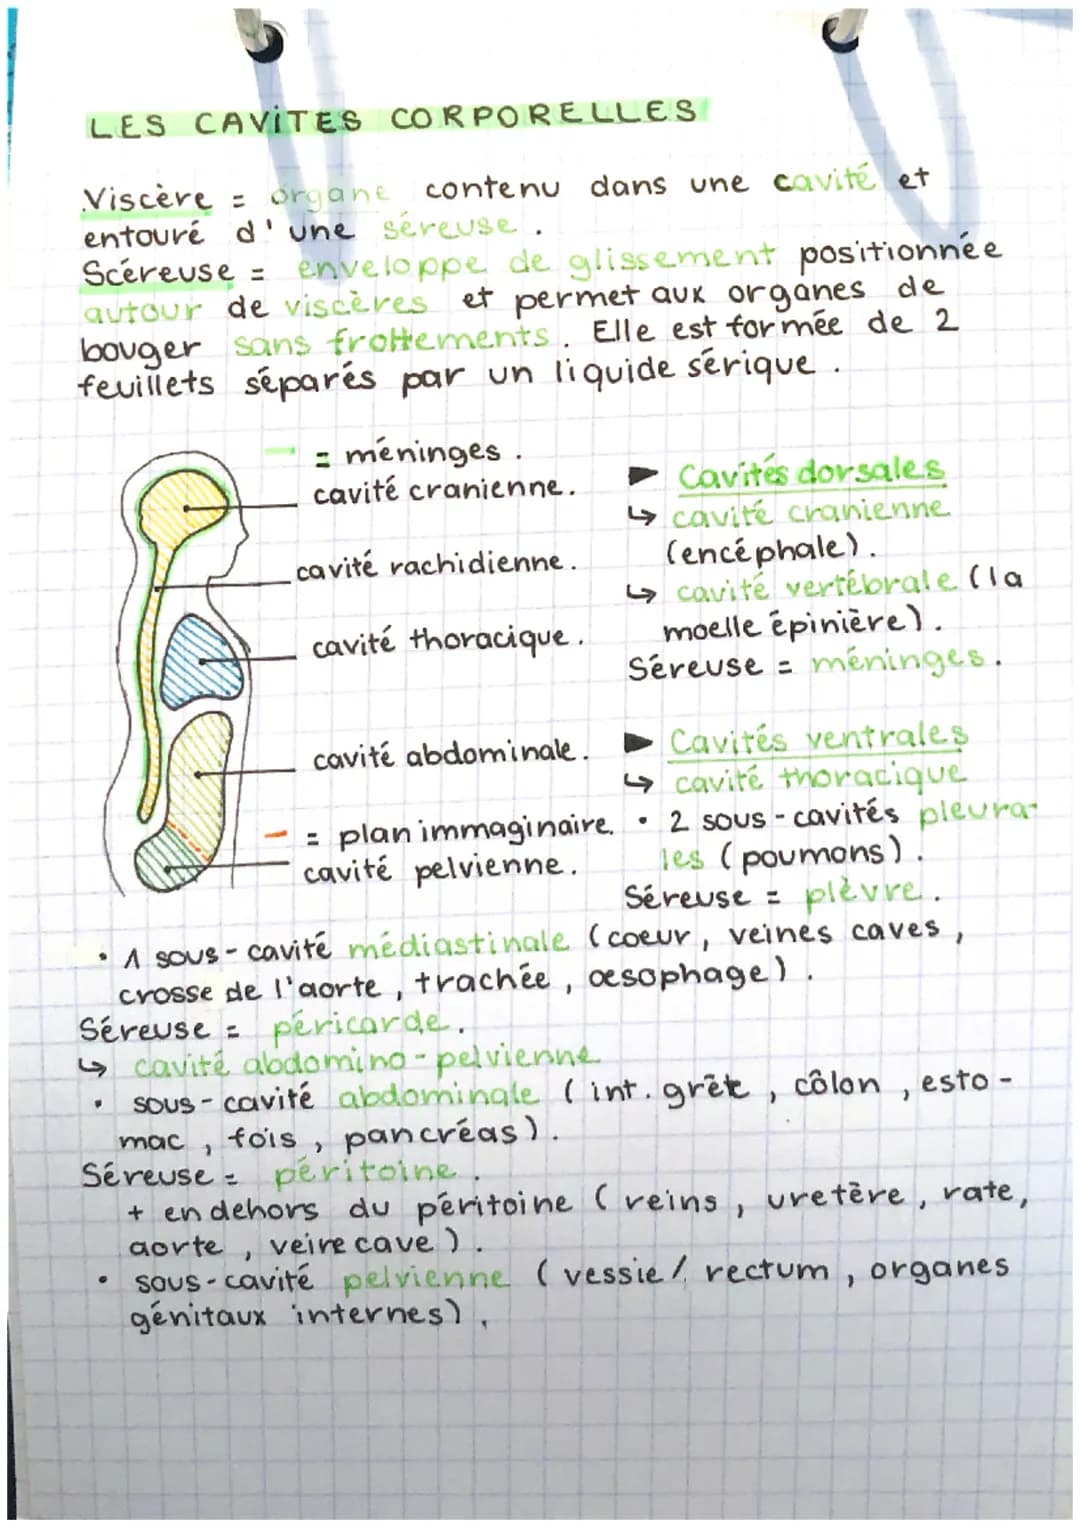 LES CAVITES CORPORELLES
Viscère = organe contenu dans une cavité et
entouré d'une séreuse.
Scéreuse = enveloppe de glissement positionnée
autour de viscères et permet aux organes de
bouger sans frottements. Elle est formée de 2
feuillets séparés par un liquide sérique.
= méninges.
cavité cranienne.
cavité rachidienne.
cavité thoracique.
cavité abdominale.
= plan immaginaire.
cavité pelvienne.
► Cavités dorsales
↳ cavité cranienne
(encéphale).
↳ cavité vertébrale (la
moelle épinière).
Séreuse = méninges.
► Cavités ventrales
↳ cavité thoracique
• 2 sous-cavités pleura-
les (poumons).
Séreuse = plèvre.
• 1 sous-cavité médiastinale (coeur, veines caves,
crosse de l'aorte, trachée, œsophage).
Séreuse = péricarde.
↳ cavité abdomino-pelvienne
• sous-cavité abdominale (int. grêle, côlon, esto-
mac, fois, pancréas).
Séreuse = péritoine.
+ en dehors du péritoine (reins, uretère, rate,
aorte, veire cave).
• sous-cavité pelvienne (vessie/ rectum, organes
génitaux internes).